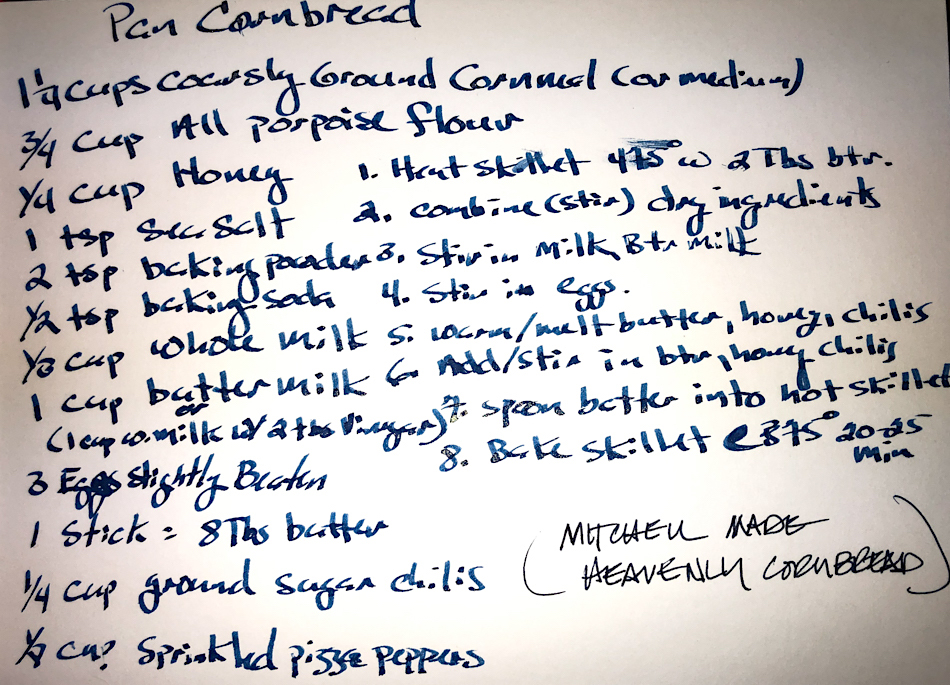 Pan Cornbread
1 1/4 cups coarsly Ground Cornmel (or medium)
3/4 cup All porpoise flour
1/4 cup Honey
1 tsp Sea Salt
2 tsp baking powder
1/2 tsp baking soda
1/3 cup whole milk
1 cup butter milk
or
(1 cup w. milk w/ 2 tbs Vinegar)
3 Eggs slightly Beaten
1 Stick = 8 Tbs butter
1/4 cup ground sugar chilis
cup Sprinkled pizza peppers
1. Heat skillet 475° w 2 Tbs btr.
2. combine (stir) dry ingredients
3. Stir in milk, Btr milk
4. Stir in eggs.
5. warm/melt butter, honey, chilis
6. Add/stir in btr, hony chilis
7. spoon batter into hot skillet
8. Bake skillet @ 375° 20-25
min
(MITCHELL MADE
HEAVENLY CORNBREAD)